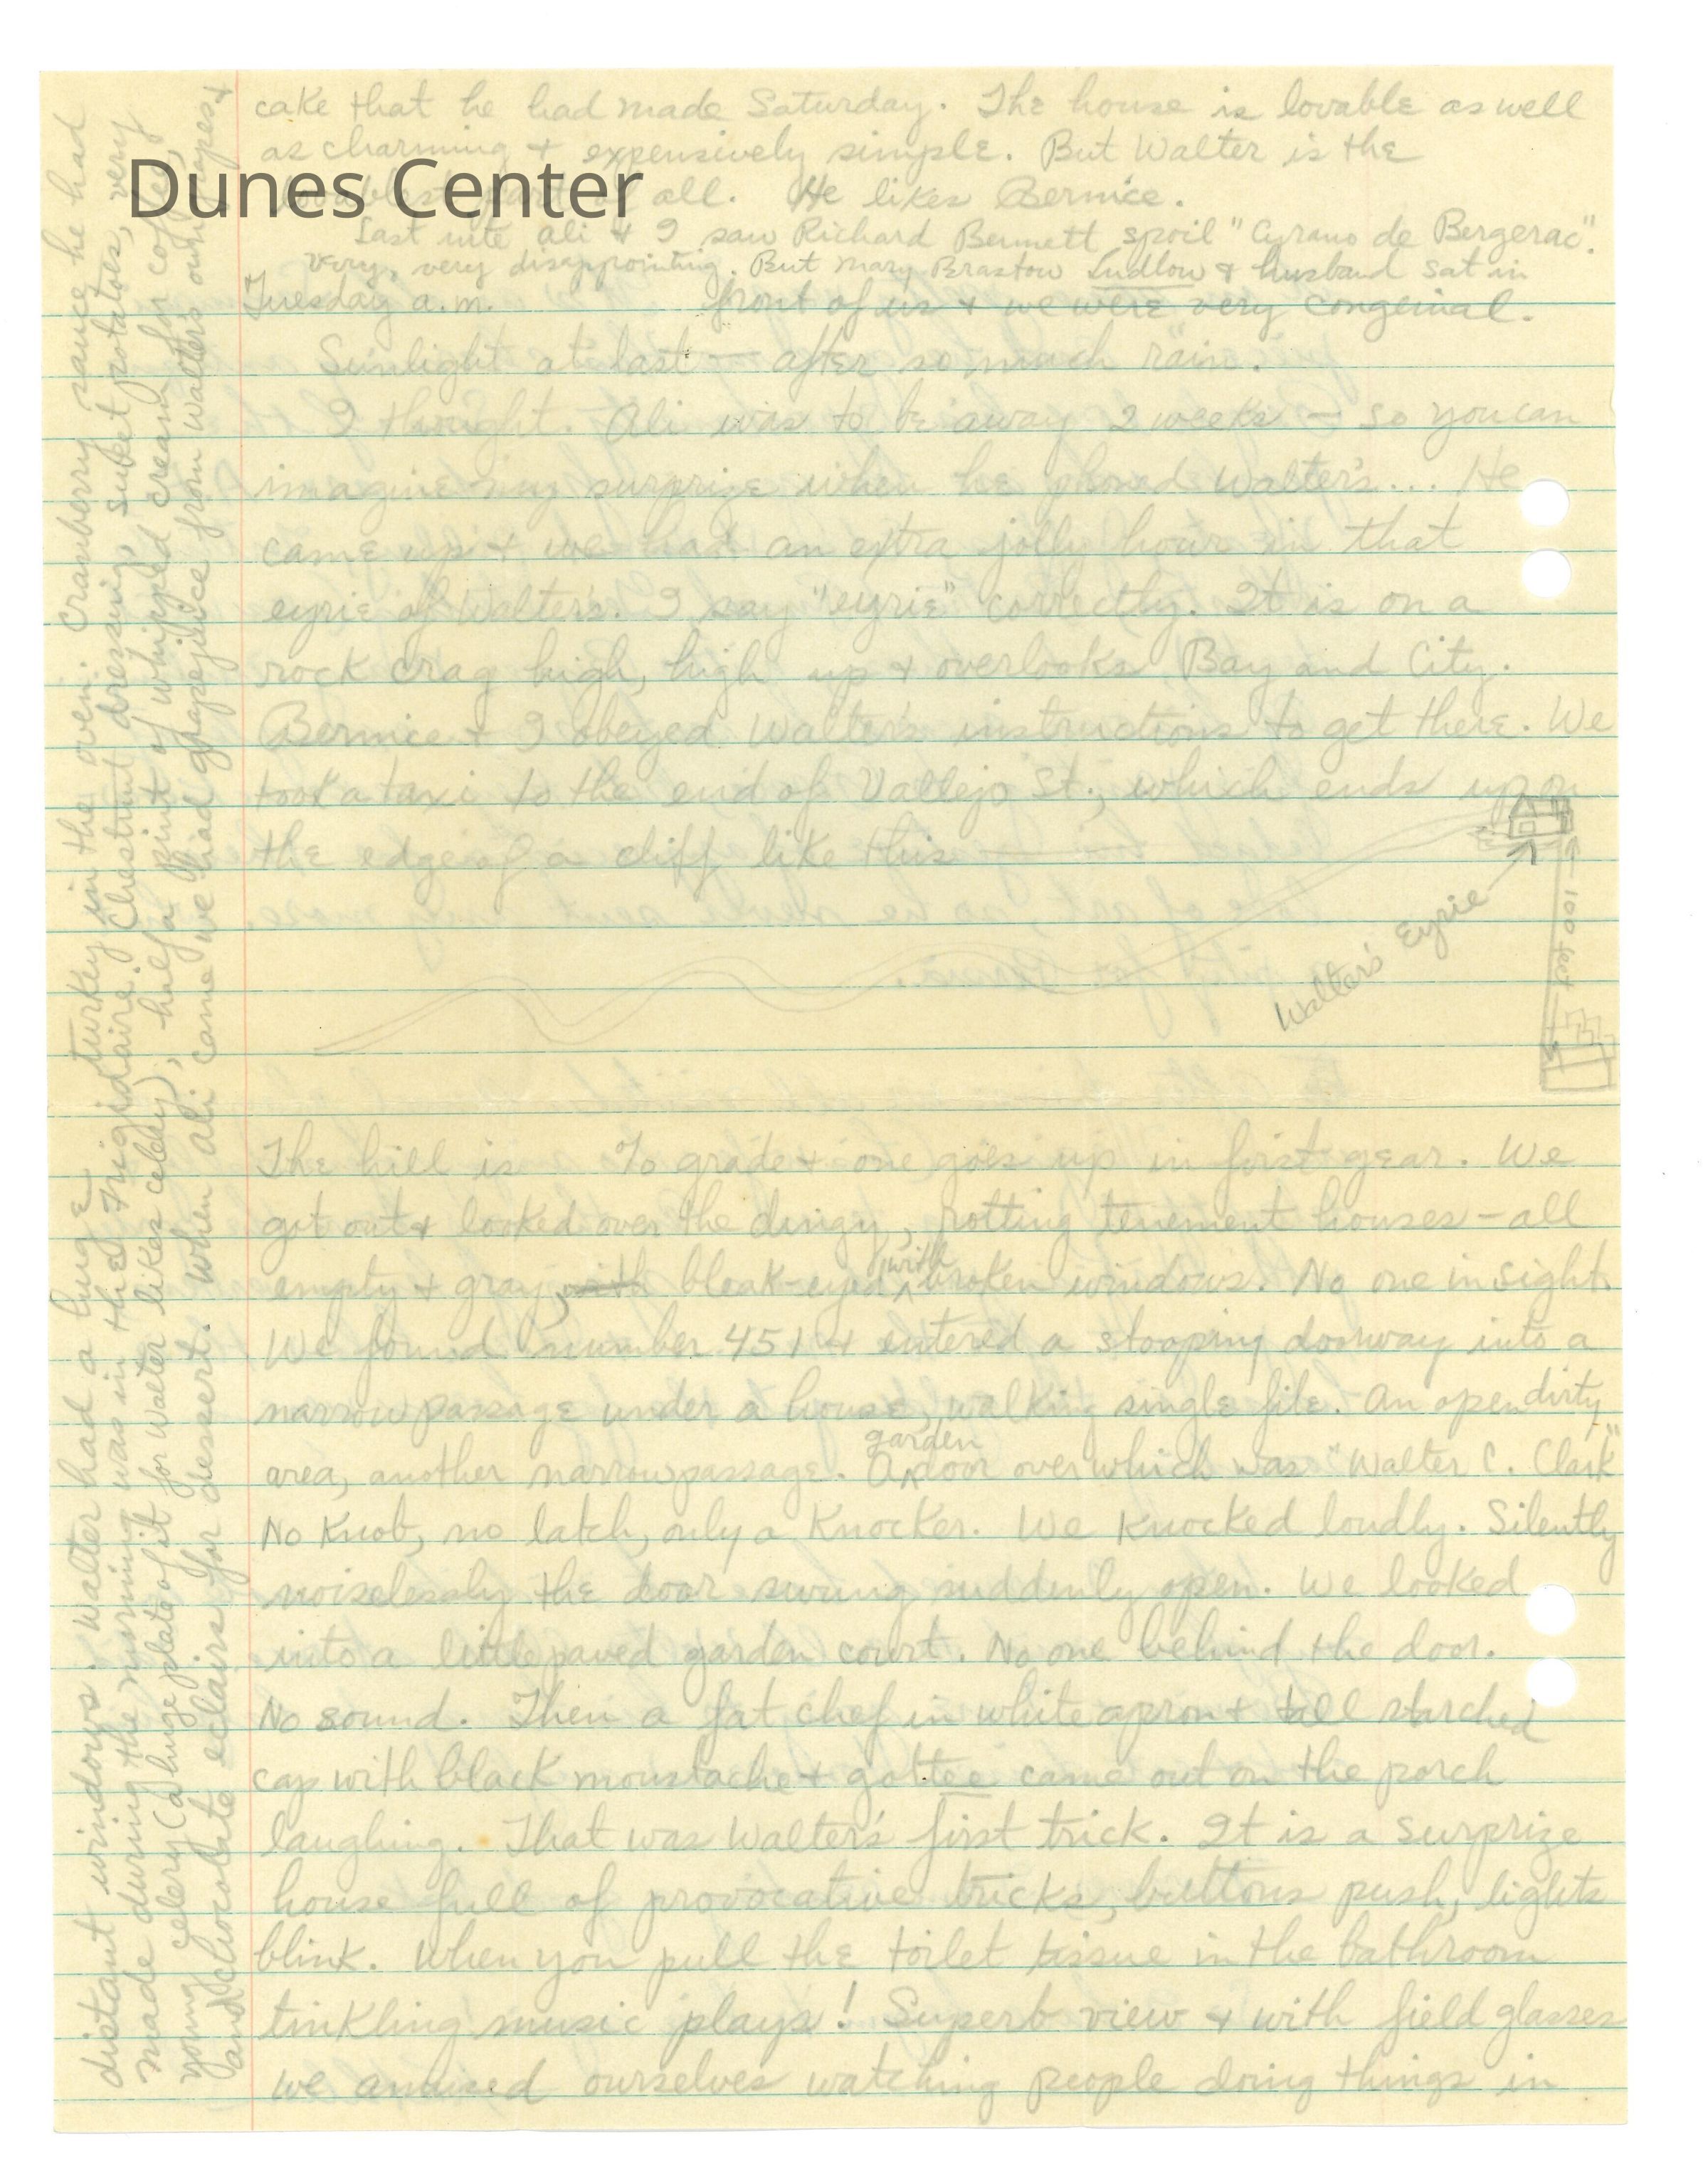 cake that he had made Saturday. The house is lovable as well
as charming + expensively simple. But Walter is the
part of all. He likes Bernice.
Dunes Center
Last nite Ali + I saw Richard Bennett spoil "Cyrano de Bergerac".
Very, very disappointing. But Mary Brastow Ludlow + husband sat in
Tuesday a.m. front of us + we were very congenial.
Sunlight at last — after so much rain.
I thought. Ali was to be away 2 weeks — so you can
imagine my surprize when he phoned Walter's... He
came up + we had an extra jolly hour in that
eyrie of Walter's. I say "eyrie" correctly. It is on a
rock crag high, high up + overlooks Bay and City.
Bernice + I obeyed Walter's instructions to get there. We
took a taxi to the end of Vallejo St., which ends up on
the edge of a cliff like this —
Walter's Eyrie
100 feet
The hill is % grade + one goes up in first gear. We
got out + looked over the dingy, rotting tenement houses — all
empty + gray, with bleak-eyed with broken windows. No one in sight.
We found number 451 + entered a stooping doorway into a
narrow passage under a house, walking single file. An open dirty
area, another narrow passage. A garden door over which was "Walter C. Clark"
No Knob, no latch, only a Knocker. We Knocked loudly. Silently
noiselessly the door swung suddenly open. We looked
into a little paved garden court. No one behind the door.
No sound. Then a fat chef in white apron + tall starched
cap with black moustache + gottee came out on the porch
laughing. That was Walter's first trick. It is a surprize
house full of provocative tricks, buttons push, lights
blink. When you pull the toilet tissue in the bathroom
tinkling music plays! Superb view + with field glasses
we amused ourselves watching people doing things in
distant windows. Walter had a huge turkey in the oven. Cranberry sauce he had
made during the morning was in the Frigidaire. Chestnut dressing, sweet potatoes, very
young celery (a huge plate of it for Walter likes celery), half a pint of whipped cream for coffee,
and chocolate eclairs for dessert. When Ali came we had grapejuice from Walter's own grapes +